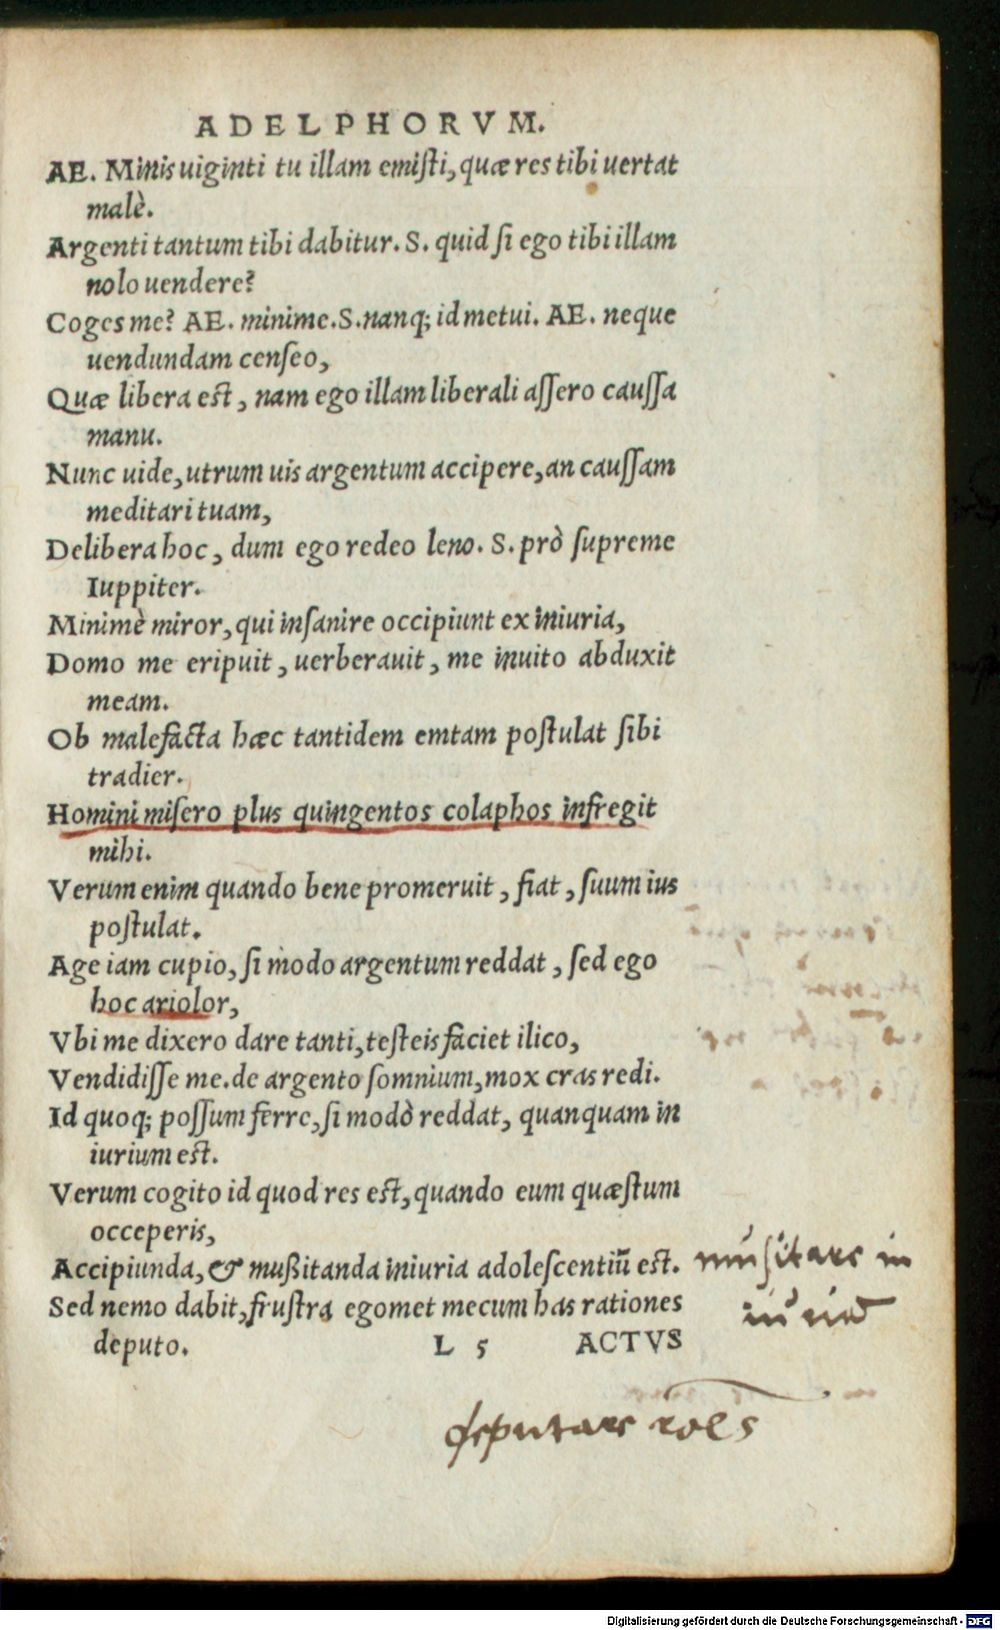 ADELPHORVM.
AE. Minis uiginti tu illam emisti, quæ res tibi uertat
malè.
Argenti tantum tibi dabitur. S. quid si ego tibi illam
nolo uendere?
Coges me? AE. minime. S. nanq; id metui. AE. neque
uendundam censeo,
Quæ libera est, nam ego illam liberali assero caussa
manu.
Nunc uide, utrum uis argentum accipere, an caussam
meditari tuam,
Delibera hoc, dum ego redeo leno. S. prò supreme
Iuppiter.
Minimè miror, qui insanire occipiunt ex iniuria,
Domo me eripuit, uerberauit, me inuito abduxit
meam.
Ob malefacta hæc tantidem emtam postulat sibi
tradier.
Homini misero plus quingentos colaphos infregit
mihi.
Verum enim quando bene promeruit, fiat, suum ius
postulat.
Age iam cupio, si modo argentum reddat, sed ego
hoc ariolor,
Vbi me dixero dare tanti, testeis faciet ilico,
Vendidisse me. de argento somnium, mox cras redi.
Id quoq; possum ferre, si modò reddat, quanquam in
iurium est.
Verum cogito id quod res est, quando eum quæstum
occeperis,
Accipiunda, & mußitanda iniuria adolescentiũ est.
musitare in
iuria
Sed nemo dabit, frustra egomet mecum has rationes
deputo. L 5 ACTVS
deputare rões
Digitalisierung gefördert durch die Deutsche Forschungsgemeinschaft - DFG